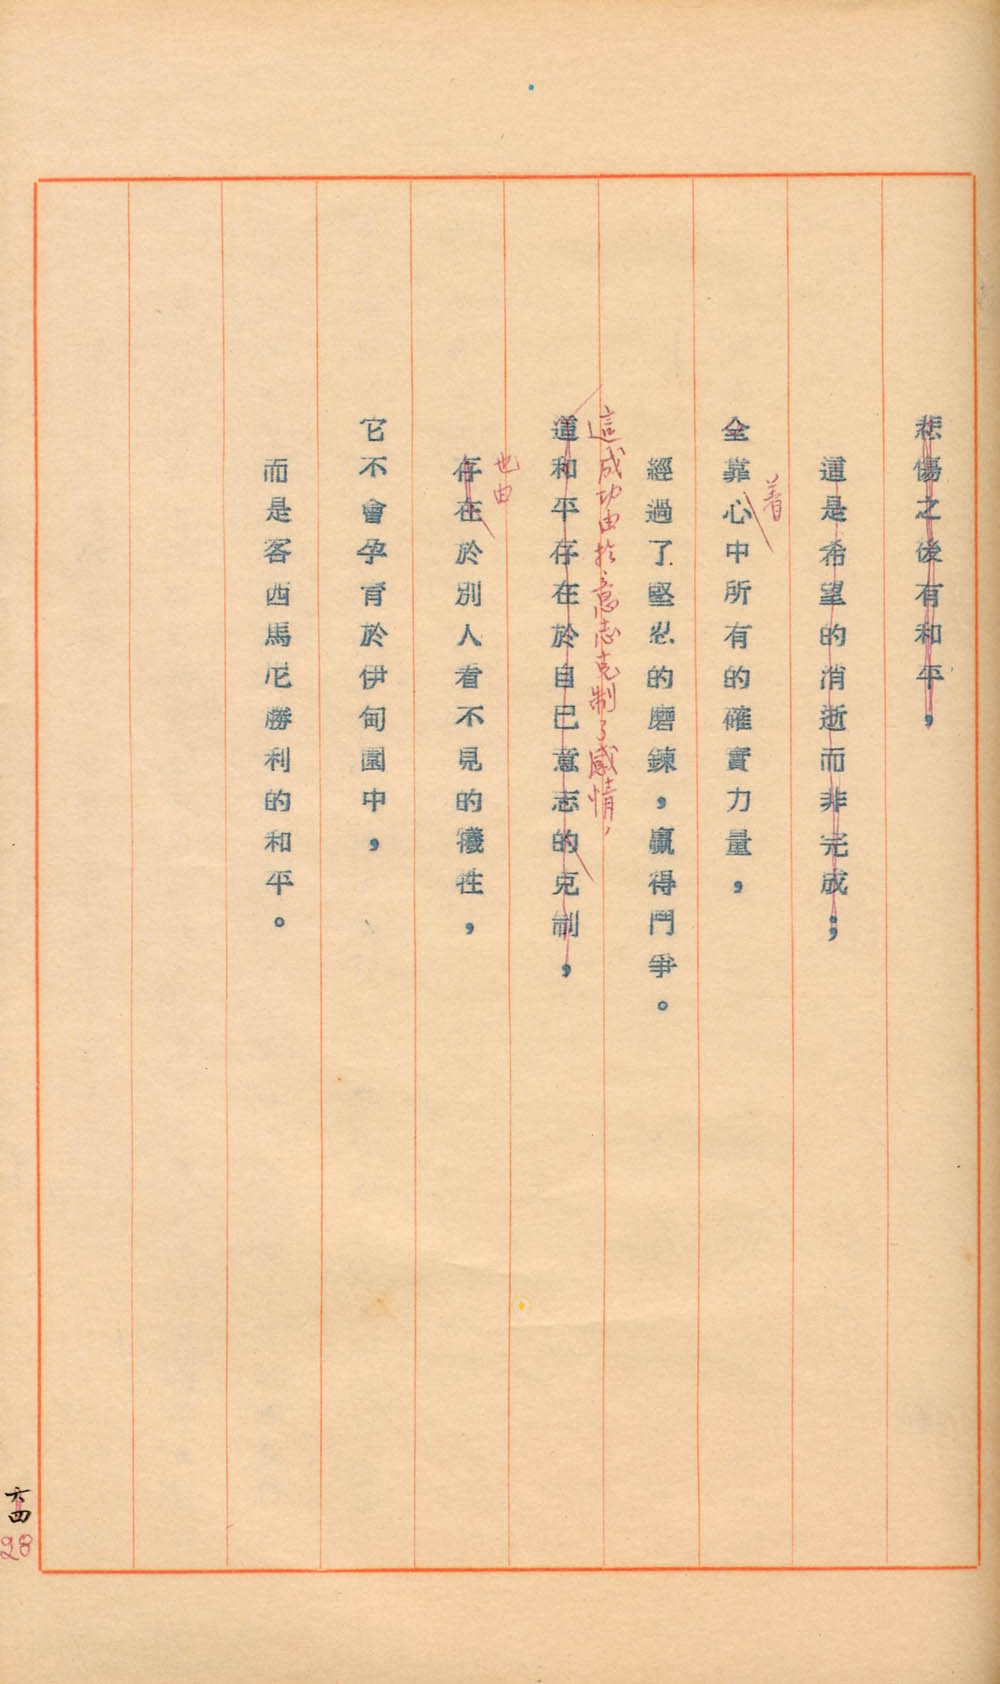 悲傷之後有和平，
這是希望的消逝而非完成；
全靠心中所有的確實力量，
着
經過了堅忍的磨鍊，贏得鬥爭。
這成功由於意志克制了感情，
這和平存在於自己意志的克制，
也由
存在於別人看不見的犧牲，
它不會孕育於伊甸園中，
而是客西馬尼勝利的和平。
六四
28